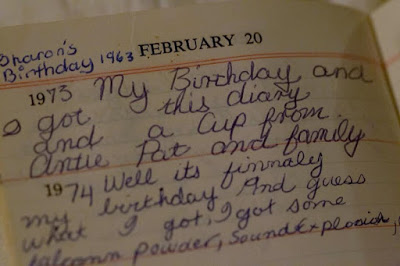 Sharon's
Birthday 1963 FEBRUARY 20
1973 My Birthday and
I got this diary
and a Cup from
Antie Pat and family
1974 Well its finnaly
my birthday And guess
what I got, I got some
talcomn powder, Sound Explosion,